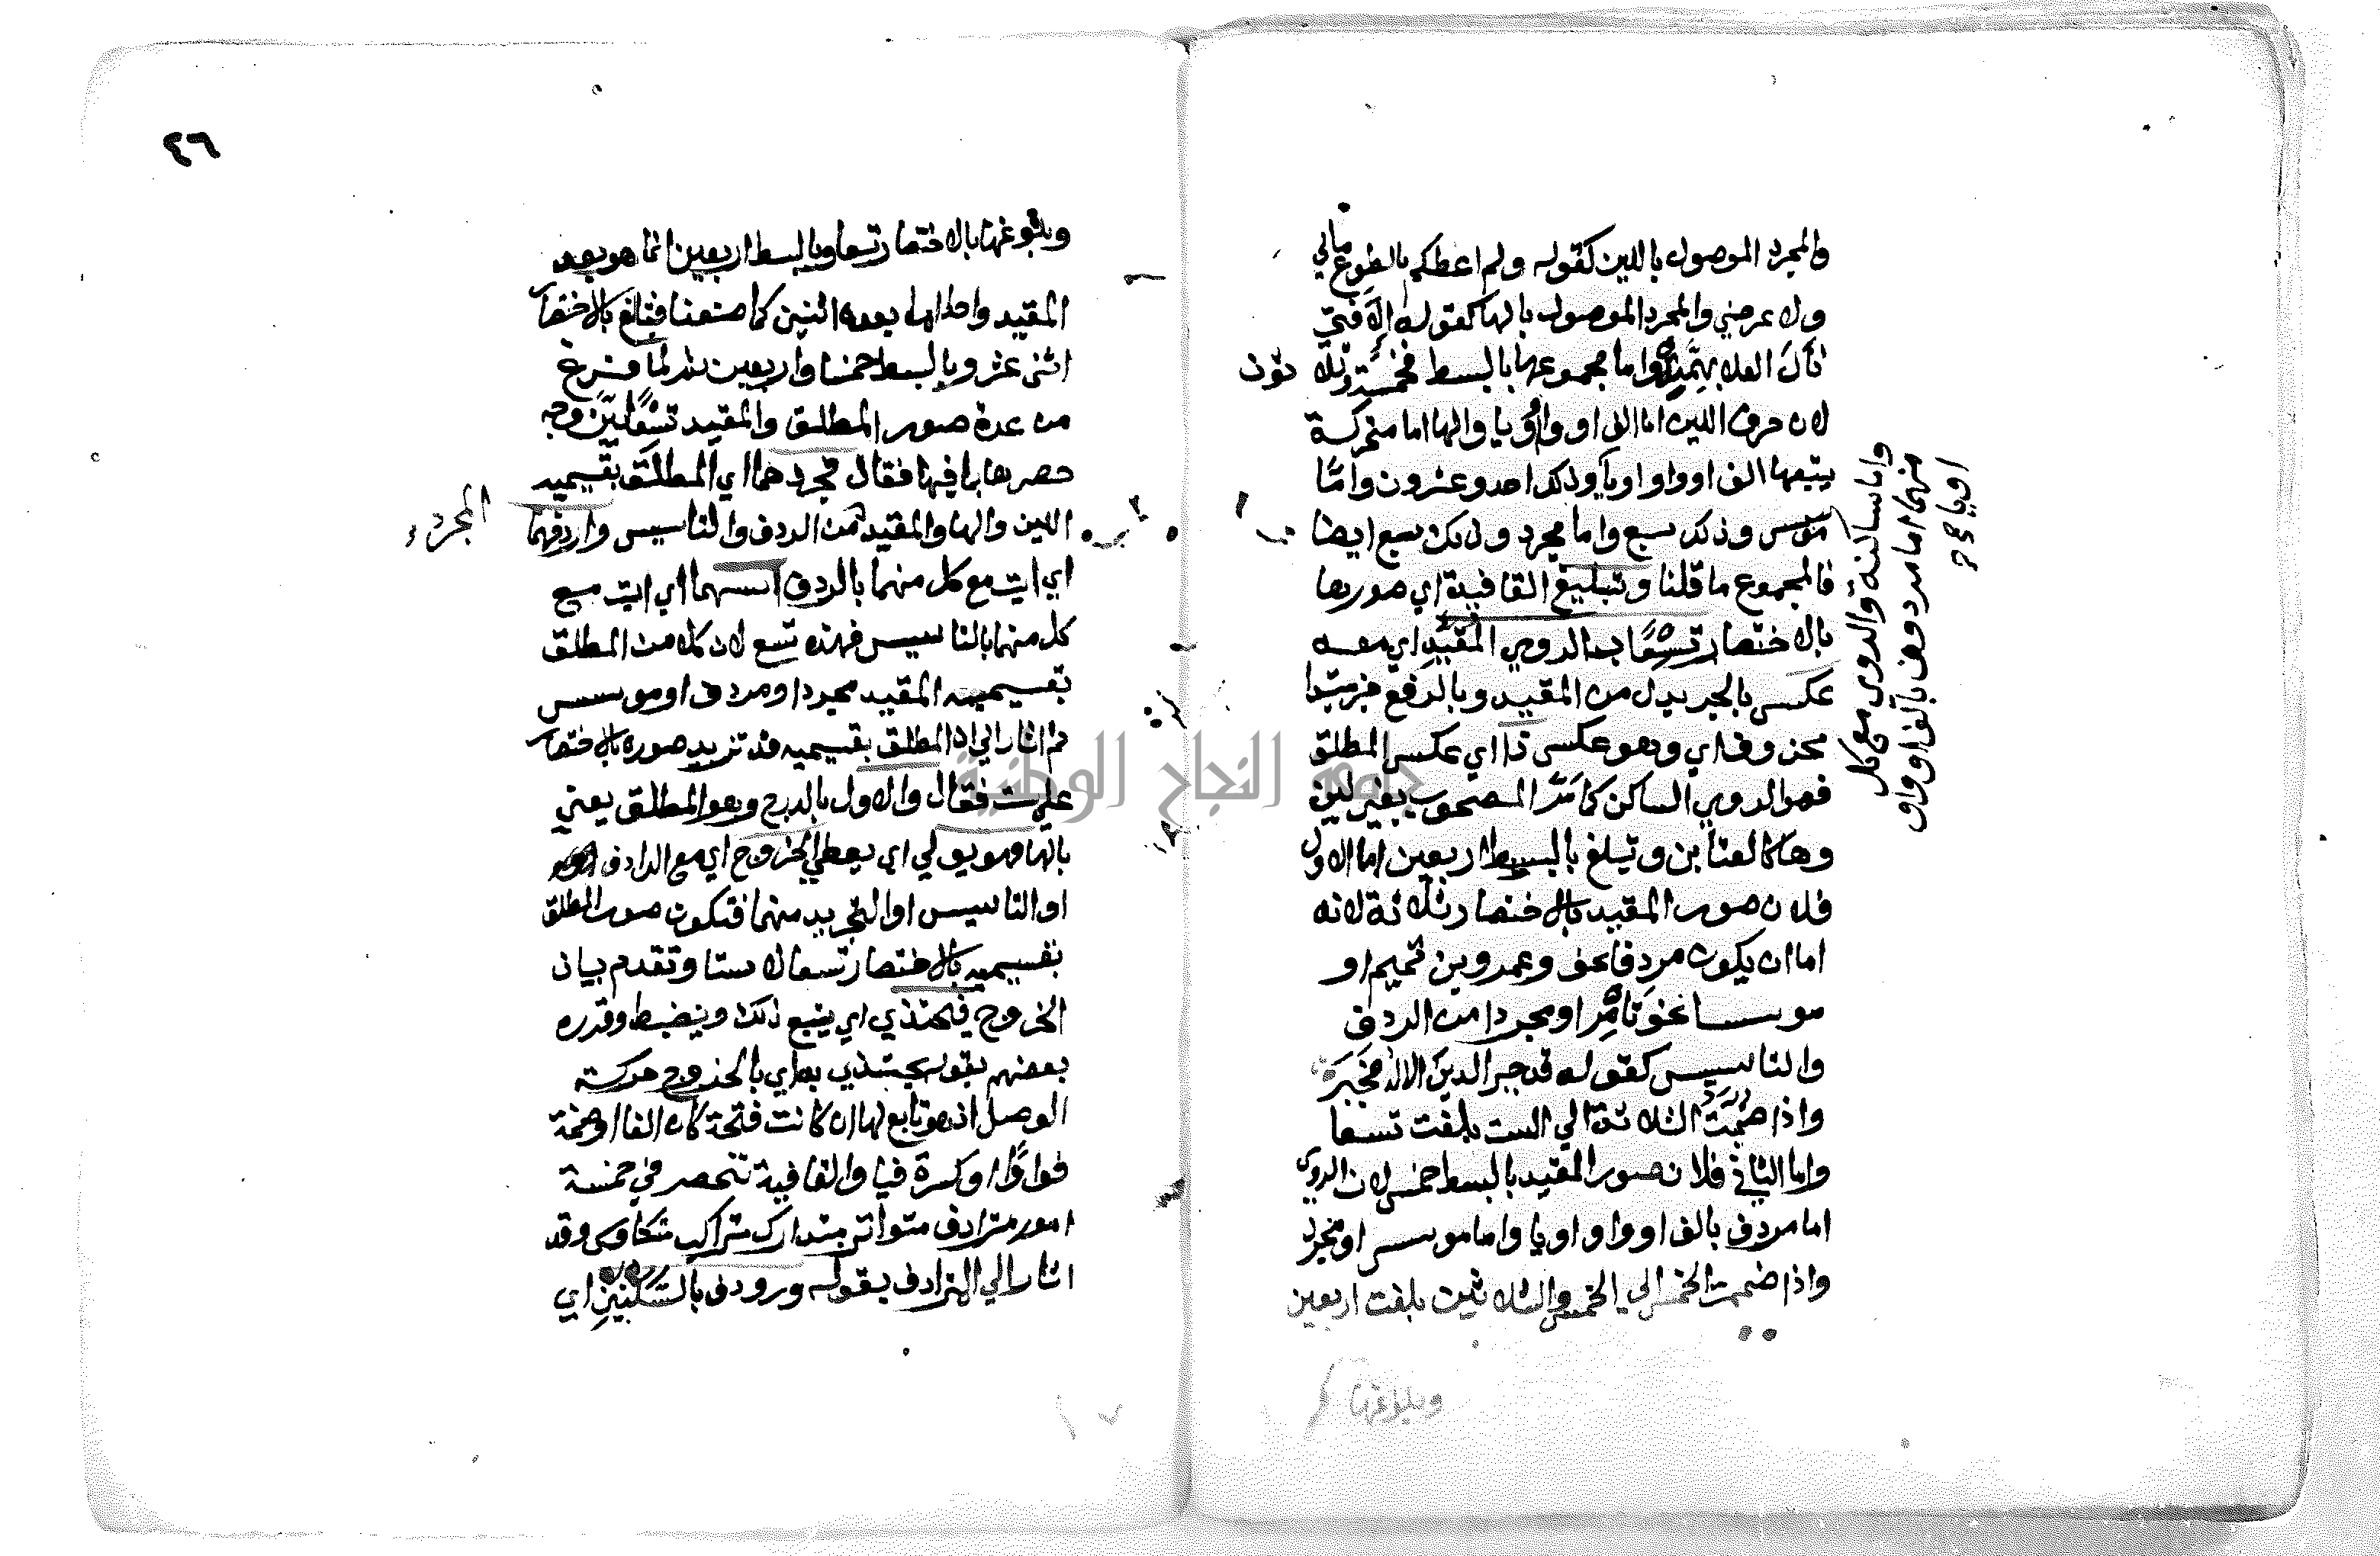 والمجرد الموصول باللين كقوله ولم اعطكم بالطوع مالي
ولا عرضي والمجرد الموصول بالها كقوله الا فتى
نال العلا بهمه واما مجموعها بالبسط فخمسة وثلاثون
لان حرف اللين اما الف او واو او يا والها اما متحركة
يتبعها الف او واو او يا وذلك احد وعشرون واما
موسس وذلك سبع واما مجرد وذلك سبع ايضا
فالمجموع ما قلنا وتبليغ القافية اي صورها
بالاختصار تسعا ب الروي المقيد اي معه
عكس بالجر بدل من المقيد وبالرفع خبر مبتدا
محذوف اي وهو عكس ذا اي عكس المطلق
فهو الروي الساكن كما مر المصحوب بغير لين
وها كالعتابن وتبلغ بالبسط اربعين اما الاول
فلان صور المقيد بالاختصار ثلاثة لانه
اما ان يكون مردفا نحو وعمرو بن تميم او
موسسا نحو تامر او مجردا من الردف
والتاسيس كقوله قد جبر الدين الاله فجبر
واذا ضممت الثلاثة الي الست بلغت تسعا
واما الثاني فلان صور المقيد بالبسط خمس لان الروي
اما مردف بالف او واو او يا واما موسس او مجرد
واذا ضممت الخمس الي الخمس والثلاثين بلغت اربعين
وبلوغها
واما ساكنة والروي مع كل
منهما اما مردوف بالف او واو
او يا صح
٢٦
وبلوغها بالاختصار تسعا وبالبسط اربعين انما هو بعد
المقيد واحدا لها بعده اثنين كما صنعنا فتبلغ بالاختصار
اثني عشر وبالبسط خمسا واربعين ثم لما فرغ
من عدة صور المطلق والمقيد تسعا بين وجه
حصرها بما فيها فقال مجرد هما اي المطلق بقسميه
اللين والها والمقيد من الردف والتاسيس واردفهما
المجرد
اي ايت مع كل منهما بالردف اسسهما اي ايت مع
كل منهما بالتاسيس فهذه تسع لان كلا من المطلق
بقسميه المقيد مجردا ومردف او موسس
ثم اشار الي ان المطلق بقسميه قد تزيد صوره بالاختصار
علي ست فقال والاول بالدرج وهو المطلق يعني
بالها فهو يولي اي يعطي الخروج اي مع الرادف
او التاسيس او التجريد منهما فتكون صور المطلق
بقسميه بالاختصار تسعا لا ستا وتقدم بيان
الخروج فيحتذي اي يتبع ذلك وينضبط وقدره
بعضهم بقوله يحتذي به اي بالخروج حركة
الوصل اذ هو تابع لها ان كانت فتحة كان الفا او ضمة
فواوا او كسرة فيا والقافية تنحصر في خمسة
امور مترادف متواتر متدارك متراكب متكاوس وقد
اشار الي المترادف بقوله ورودف بالسكنين اي
جامعة النجاح الوطنية